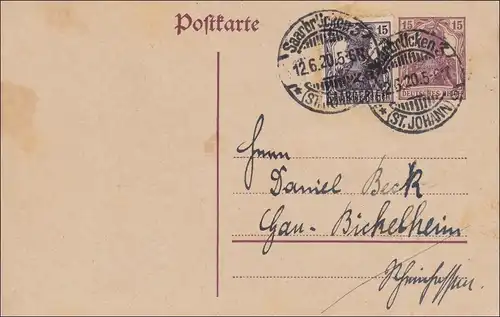 Postkarte
15
15
Saarbrücken 3
12.6.20.5-6N
*(ST. JOHANN)*
SAARGEBIET
Saarbrücken 3
6.20.5-
*(ST. JOHANN)*
DEUTSCHES REICH
Herrn
Daniel Beck
Gau-Bickelheim
Rheinhessen